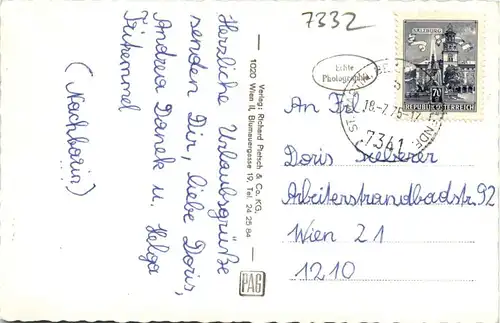 7332
Herzliche Urlaubsgrüße
senden Dir, liebe Doris,
Andrea Danek u. Helga
(Nachbarin)
Verlag: Richard Pietsch & Co. KG.
1020 Wien II, Blumauergasse 19, Tel. 24 25 84
PAG
Echte
Photographie
SALZBURG
REPUBLIK ÖSTERREICH
18.-7.75-12
7341
An Frl.
Doris
Arbeiterstrandbadstr. 92
Wien 21
1210